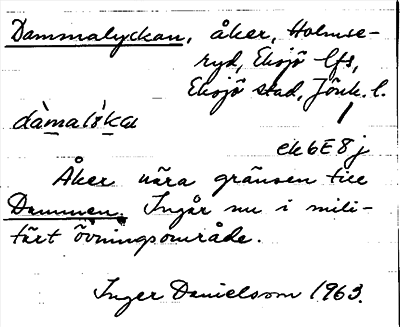 Dammalyckan, åker, Holmse-
ryd, Eksjö lfs,
Eksjö stad, Jönk. l.
ek6E8j
Åker nära gränsen till
Dammen. Ingår nu i mili-
tärt övningsområde.
Inger Danielsson 1963.